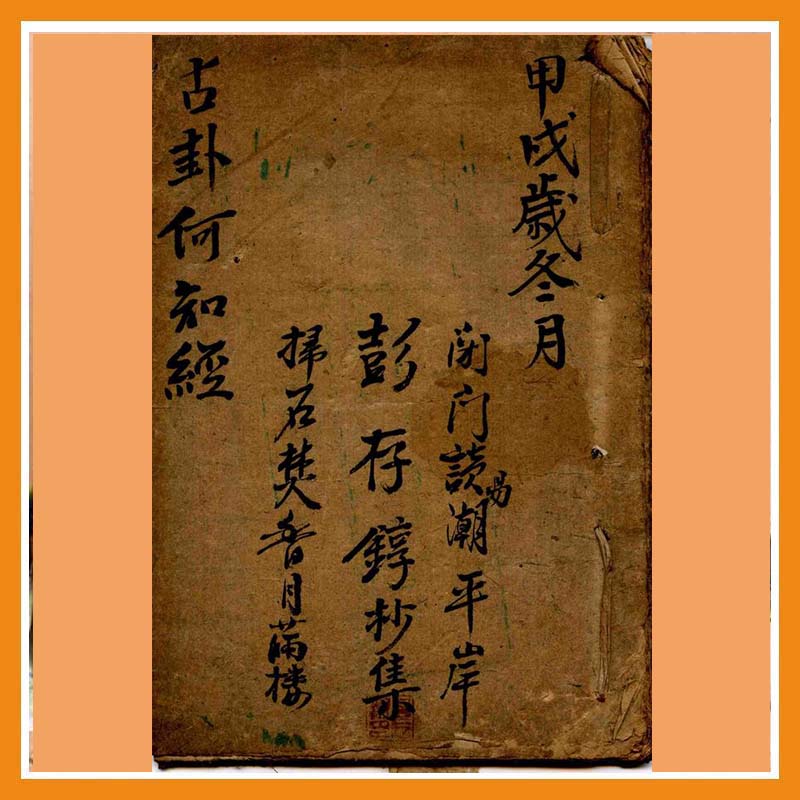 甲戌歲冬月
闭门读易潮平岸
彭存錞抄集
掃石焚香月滿楼
古卦何知經